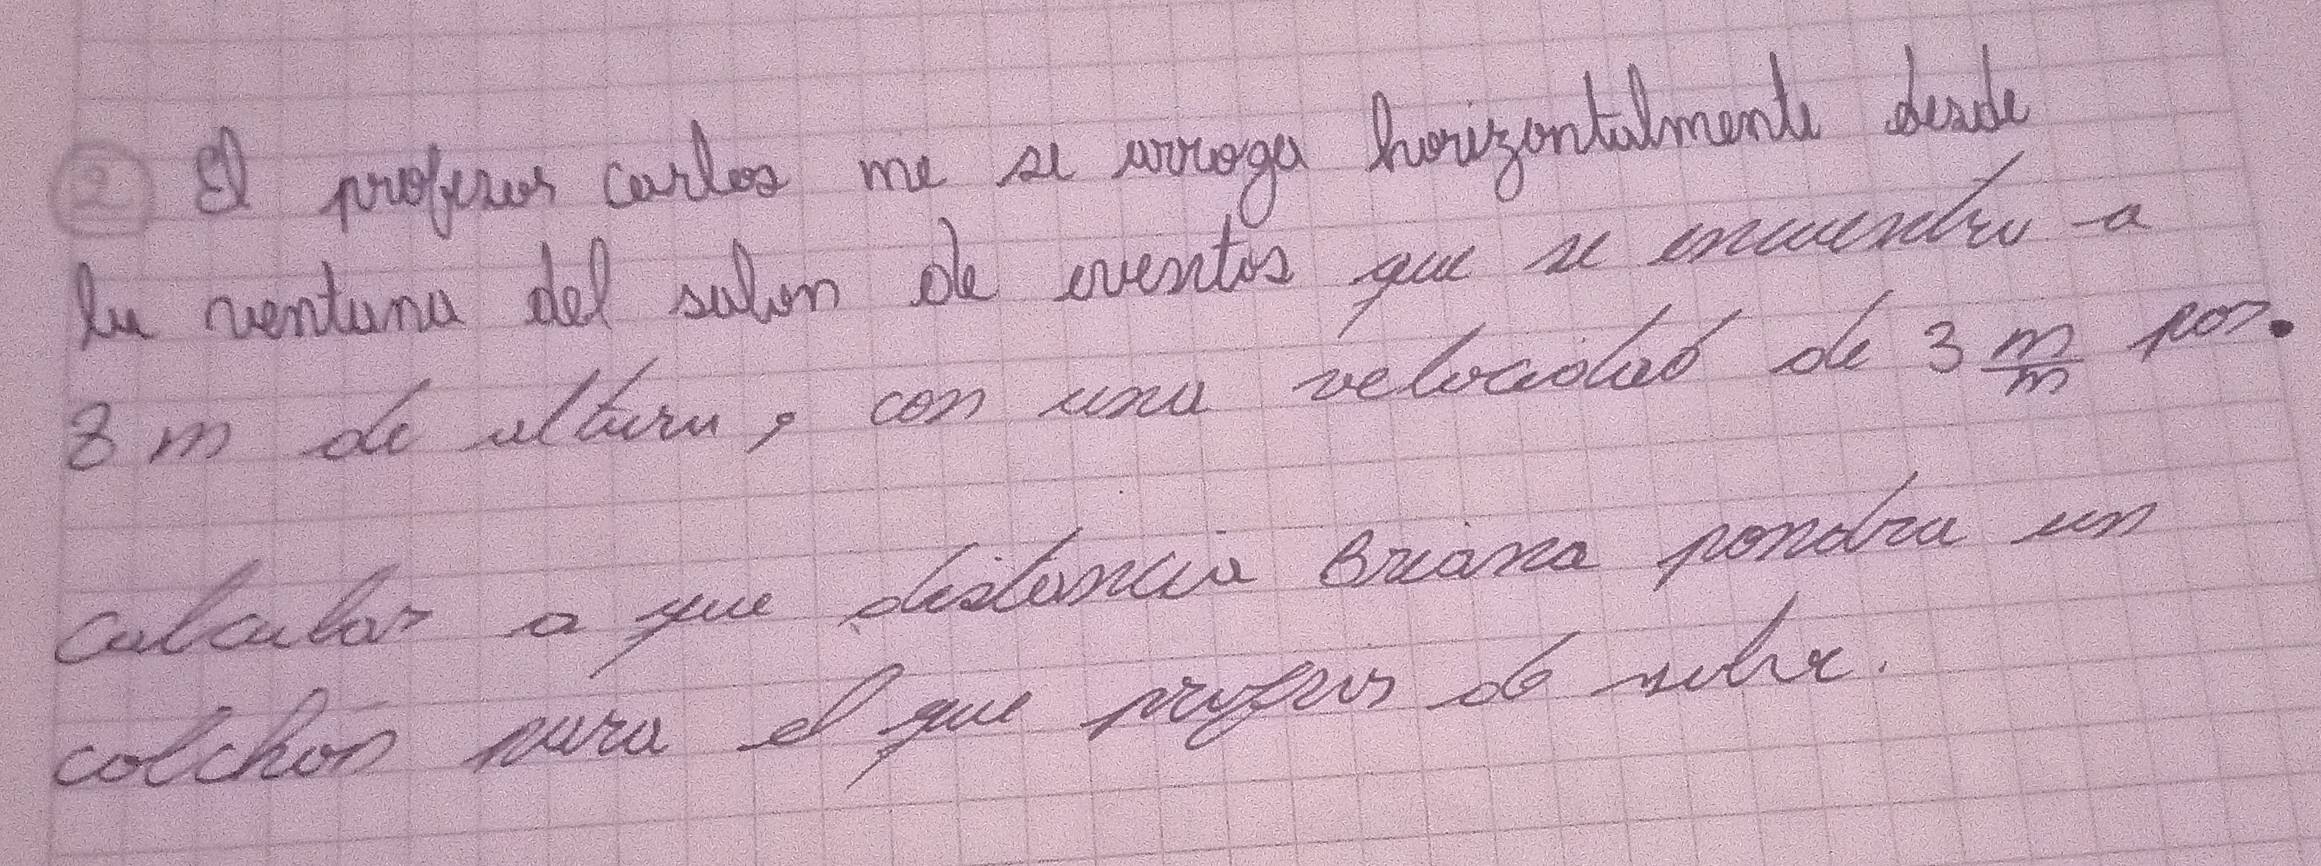 2 El profesor carlos me se arroga horizontalmente desde
la ventana del salon de eventos que se encuentra a
8 m de altura, con una velocidad de 3 m/m por.
calcular a que distancia Briana pondra un
colchon para el que profesor de salve.